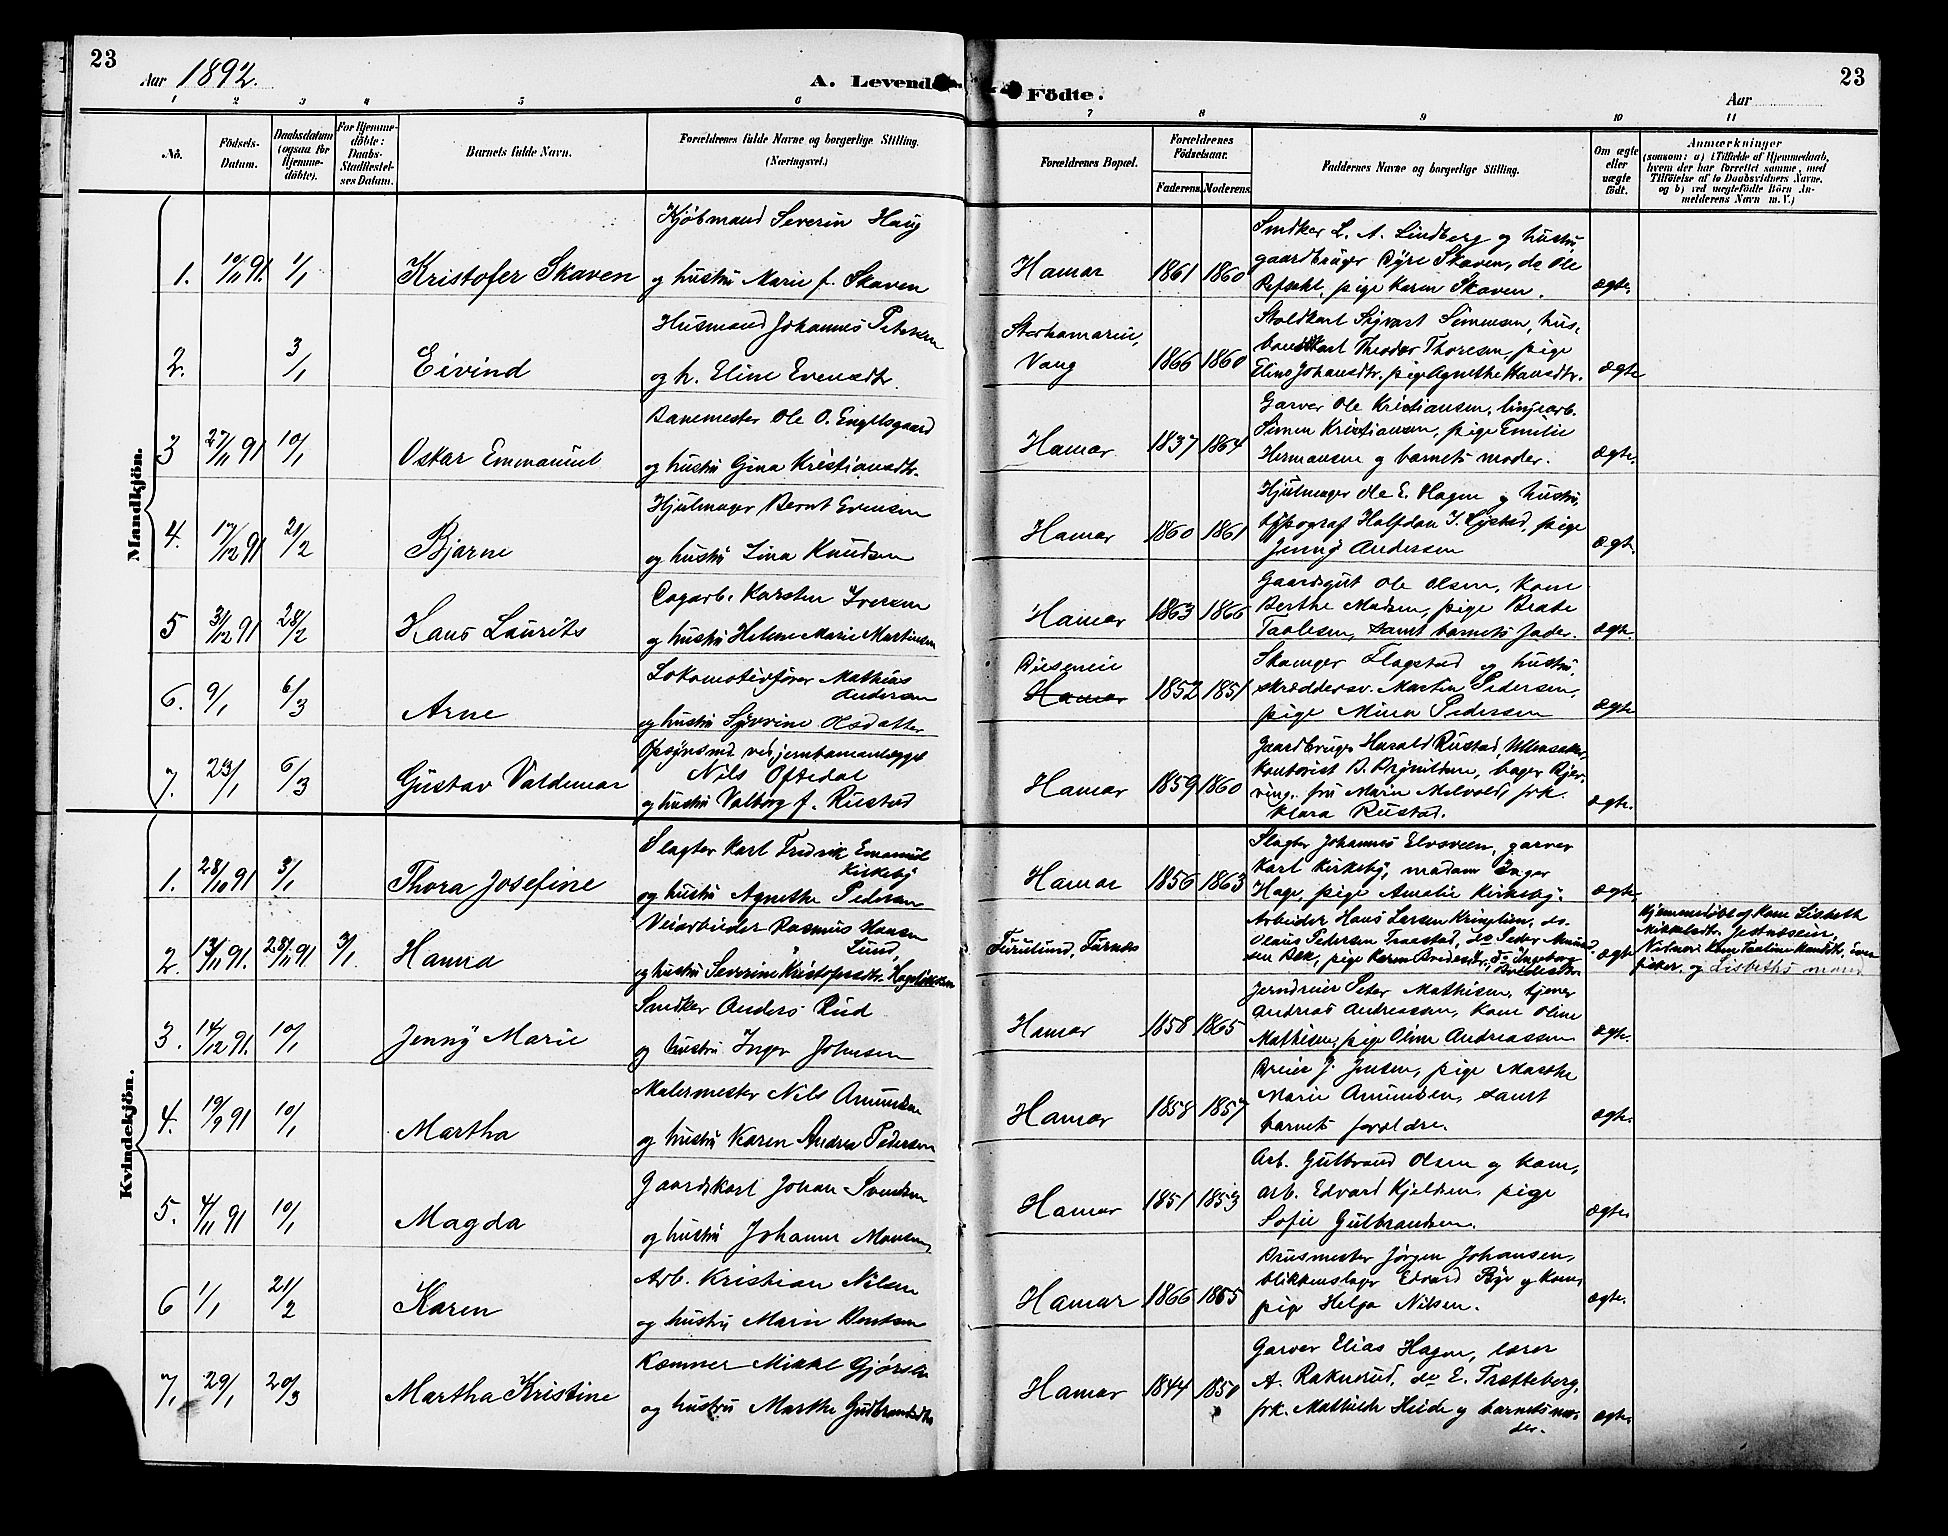 23
Aar 1892.
A. Levende
Födte.
Aar
23
1 2 3 4 5 6 7 8 9 10 11
No.
Födsels-Datum.
Daabsdatum (ogsaa for Hjemme-döbte).
For Hjemme-döbte: Daabs-Stadfæstel-ses Datum.
Barnets fulde Navn.
Forældrenes fulde Navne og borgerlige Stilling.
(Næringsvei.)
Forældrenes Bopæl.
Forældrenes Födselsaar.
Faderens. Moderens.
Faddernes Navne og borgerlige Stilling.
Om ægte eller uægte födt.
Anmærkninger
(saasom: a) i Tilfælde af Hjemmedaab,
hvem der har forrettet samme, med
Tilföielse af to Daabsvidners Navne,
og b) ved uægtefödte Börn An-
melderens Navn m. V.)
Mandkjön.
Kjøbmand Severin Haug
og hustru Marie f. Skaven
1. 10/11 91. 1/1 Kristofer Skaven
Hamar 1861 1860
Snedker L. A. Lindberg og hustru,
gaardbruger Syre Skaven, do Ole
pige Karen Skaven.
ægte.
Husmand Johannes Petersen
og h. Eline Evensdtr.
2. 3/1 Eivind
Storhamareie,
Vang
1866 1860
Staldkarl Sigvart Simensen, hus-
Theodor Thoresen, pige
Eline Johansdtr. pige Agnethe Hansdtr.
ægte
Banemester Ole O. Engelsgaard
og hustru Gina Kristiansdtr.
3 27/11 91 10/1 Oskar Emmanuel
Hamar 1837 1864
Garver Ole Kristiansen, linjearb.
Simen Kristiansen, pige Emilie
Hermansen og barnets moder.
ægte.
Hjulmager Bernt Evensen
og hustru Lina Knudsen
4. 17/12 91 21/2 Bjarne
Hamar 1860 1861
Hjulmager Ole E. Hagen og hustru,
typograf Halfdan I. Lystad, pige
Jenny Andersen
ægte.
Dagarb. Karsten Iversen
og hustru Helene Marie Martinsen
5 31/12 91 28/2 Hans Laurits
Hamar 1863 1866
Gaardsgut Ole Olsen, kone
Berthe Madsen, pige Beate
Paulsen, samt barnets fader.
ægte.
Lokomotivfører Mathias
Andersen
og hustru Syverine Olsdatter
6. 9/1 6/3 Arne
Hamar
1852 1851
Skomager Flagstad og hustru,
skreddersv. Martin Pedersen,
pige Mina Pedersen
ægte
Opsynsmd. ved jernbaneanlægget
Nils Oftedal
og hustru Valborg f. Rustad
7. 23/1 6/3 Gustav Valdemar
Hamar 1859 1860
Gaardbruger Harald Rustad, Ullensaker,
kontorist B. Brynildsen, bager Bjer-
ving. fru Marie Melvold, frk.
Klara Rustad.
ægte.
Kvindekjön.
Slagter Karl Fredrik Emanuel
Kirkeby
og hustru Agnethe Pedersen
1. 28/10 91 3/1 Thora Josefine
Hamar 1856 1863
Slagter Johannes Elvsveen, garver
Karl Kirkeby, madam Inger
Hage, pige Amalie Kirkeby.
ægte.
Veiarbeider Rasmus Hansen
Lund,
og hustru Severine Kristofersdtr.
2. 13/11 91. 28/11 91 3/1 Hanna
Furulund, Furnes
Arbeider Hans Larsen Kringlien, do.
Olaus Pedersen Træstad, do Peder
pige Karen
ægte
Hjemmedøbt af kone Lisbeth
og Lisbeths mand
Snedker Anders Rud
og hustru Inger Johnsen
3. 14/12 91. 10/1 Jenny Marie
Hamar 1858 1865
Jerndreier Peter Mathisen, tjener
Andreas Andreassen, kone Oline
Mathisen, pige Oline Andreassen
ægte.
Malermester Nils Amundsen
og hustru Karen Andrea Pedersen
4. 19/9 91 10/1 Martha
Hamar 1858 1857
Dreier J. Jensen, pige Marthe
Marie Amundsen, samt
barnets foreldre.
ægte.
Gaardskarl Johan Svendsen
og hustru Johanne Monsen
5. 4/11 91 10/1 Magda
Hamar 1851 1853
Arb. Gulbrand Olsen og kone,
arb. Edvard Kjeldsen, pige
Sofie Gulbrandsen.
ægte.
Arb. Kristian Nilsen
og hustru Marie Bentsen
6 1/1 21/2 Karen
Hamar 1866 1865
Brusmester Jørgen Johansen,
blikkenslager Edvard Bye og kone,
pige Helga Nilsen.
ægte.
Kæmner Mikkel Gjørslie
og hustru Marthe Gudbrandsdtr.
7. 29/1 20/3 Martha Kristine
Hamar 1844 1850
Garver Elias Hagen, lærer
A. Raknerud, do E. Trætteberg,
frk. Mathilde Heide og barnets mo-
der.
ægte.